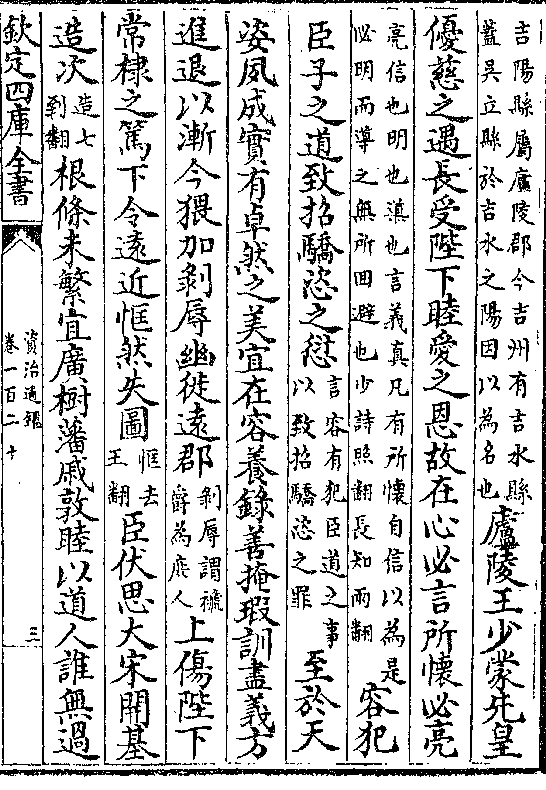 吉陽縣屬廬陵郡今吉州有吉水縣
蓋吳立縣於吉水之陽因以為名也
廬陵王少蒙先皇
優慈之遇長受陛下睦愛之恩故在心必言所懷必亮
亮信也明也滇也言義真凡有所懷自信以為是
必明而導之無所回避也少詩照翻長知兩翻
容犯
臣子之道致招驕恣之愆
言容有犯臣道之事
以致招驕恣之罪
至於天
姿夙成實有卓然之美宜在容養錄善掩瑕訓盡義方
進退以漸今猥加剝辱幽徙遠郡
剝辱謂褫
爵為庶人
上傷陛下
常棣之篤下令遠近恇然失圖
恇去
王翻
臣伏思大宋開基
造次
造七
到翻
根條未繁宜廣樹藩戚敦睦以道人誰無過
欽定四庫全書
資治通鑑
卷一百二十
三